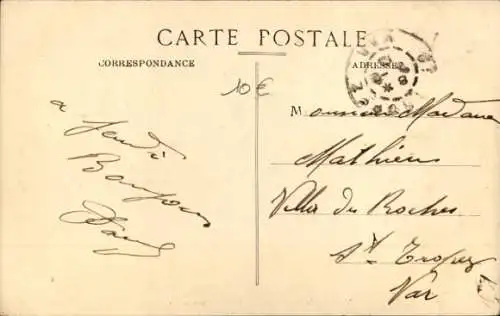 CARTE POSTALE
CORRESPONDANCE
ADRESSE
10 €
à Jeudi
Bonjour
Monsieur Madame
Mathieu
Villa des Roches
St Tropez
Var